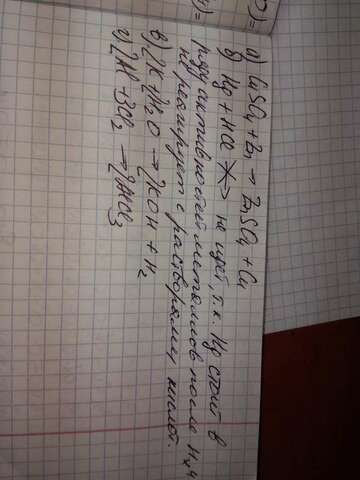 а) CuSO₄ + Zn → ZnSO₄ + Cu
б) Hg + HCl ↛ не идет, т.к. Hg стоит в
ряду активностей металлов после H и
не реагирует с растворами кислот.
в) 2K + 2H₂O → 2KOH + H₂
г) 2Al + 3Cl₂ → 2AlCl₃